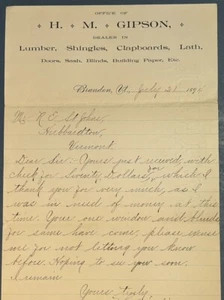 OFFICE OF
H. M. GIPSON,
DEALER IN
Lumber, Shingles, Clapboards, Lath,
Doors, Sash, Blinds, Building Paper, Etc.
Brandon, Vt. July 21 189
Mr. R. E.
Hubbardton,
Vermont.
Dear Sir: Yours just received, with
check for Dollars, for which I
thank you for very much, as I
was in need of money at this
time. Yours one window and blinds
for same have come, please excuse
me for not letting you know
before. Hoping to see you soon.
I remain
Yours Truly,